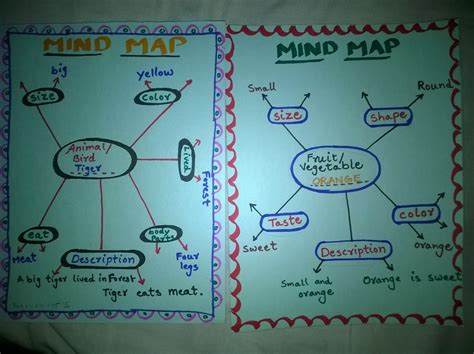 MIND MAP
big
yellow
size
color
Animal/
Bird
Tiger
Lived
Forest
eat
body
Parts
Meat
Description
Four
legs
A big tiger lived in Forest
Tiger eats meat.
MIND MAP
Small
Round
size
shape
Fruit/
Vegetable
ORANGE
Taste
color
Sweet
Description
orange
Small and
orange
Orange is sweet